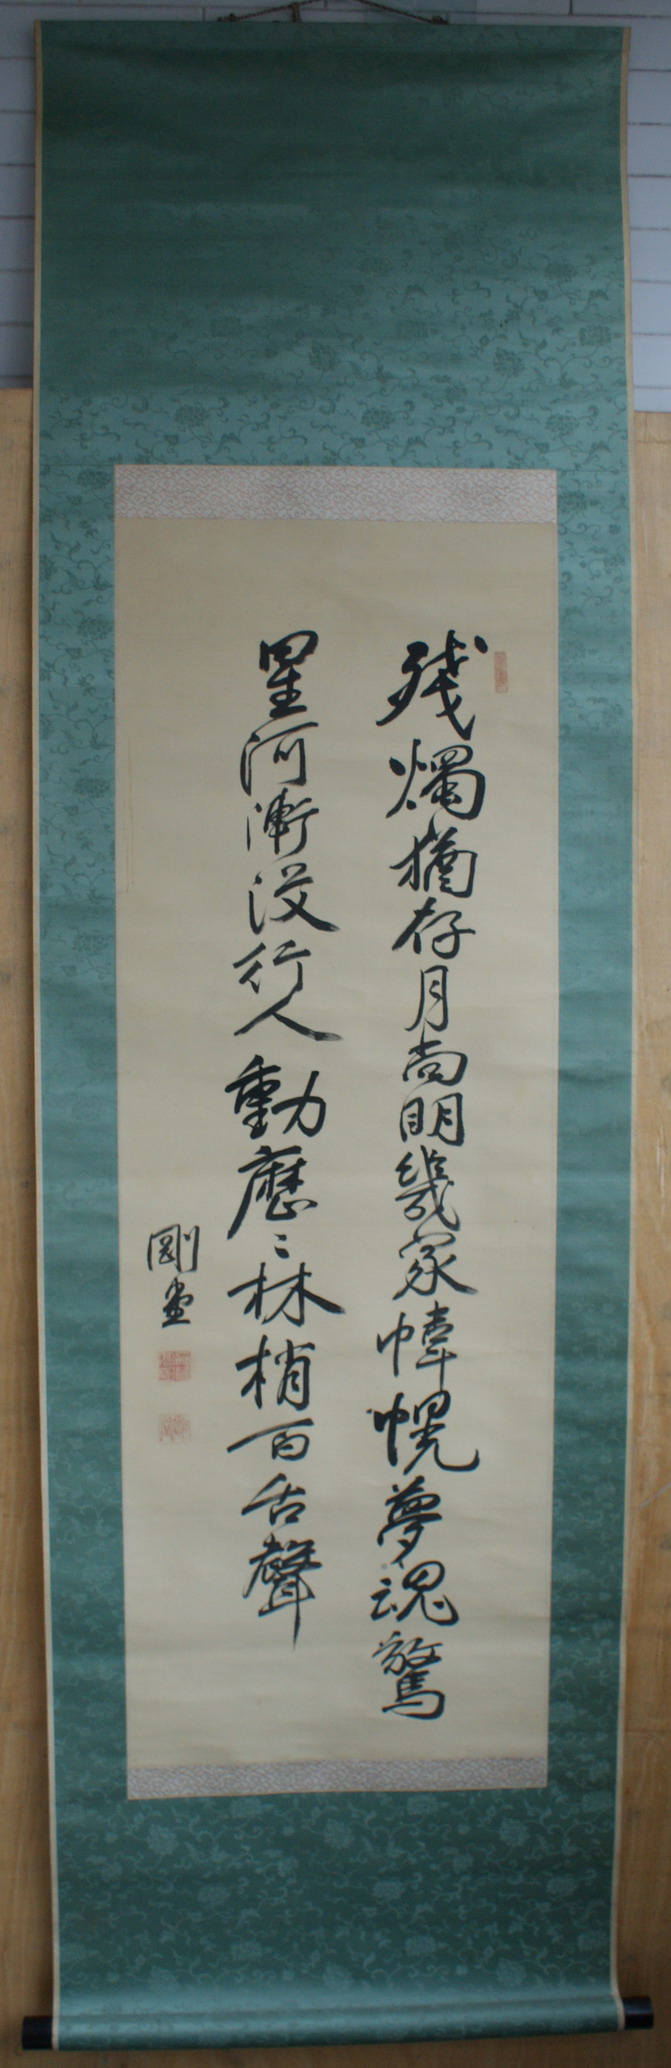 残燭猶存月尚明幾家幃幌夢魂驚
星河漸没行人動歴〻林梢百舌聲
剛堂